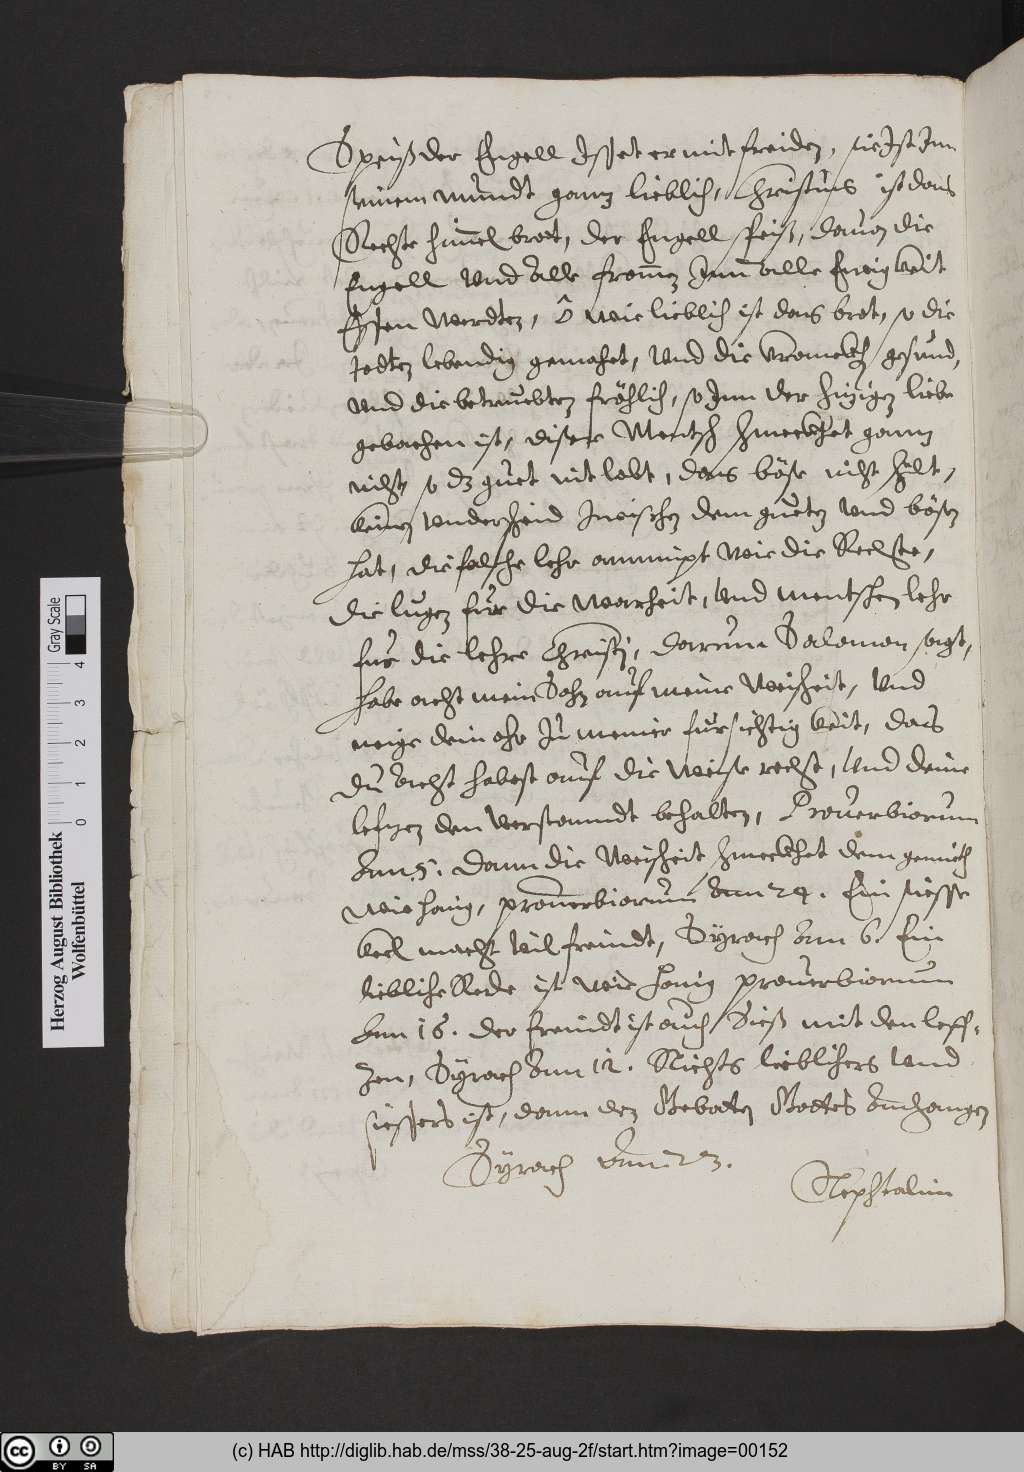 Speiß der Engell Isset er mit freiden, sie Ist Inn
seinem mundt gantz lieblich, Christus ist das
Rechte himel brot, der Engell speiß, dauon die
Engell Vnd alle fromen Inn alle Ewigkeit
Essen werdten, O wie lieblich ist das brot, so die
todten lebendig gemachet, Vnd die kranckh gesund,
Vnd die betruebten fröhlich, so Inn der hizigen liebe
gebachen ist, diser Mentsch schmeckhet gantz
nicht, so dz guet nit lobt, das böse nicht schilt,
keinen Vnderscheid Zwischen dem gueten Vnd bösen
hat, die falsche lehr annimpt wie die Rechte,
die lugen fur die warheit, Vnd mentschen lehr
fur die lehre Christj, darum Salomon sagt,
habe acht mein Sohn auf meine Weisheit, Vnd
neige dein ohr Zu meiner fursichtigkeit, das
du acht habest auf die weise recht, Vnd deine
lefzen den Verstanndt behalten, Prouerbiorum
Am 5. dann die Weisheit schmeckhet dem gemüth
wie honig, prouerbiorum Am 24. Ein siesse
kell macht Vil freindt, Syrach Am 6. Ein
liebliche Rede ist wie honig prouerbiorum
Am 16. der freindt ist auch Siess mit den leff-
zen, Syrach Am 12. Nichts lieblichers Vnd
siessers ist, dann den Geboten Gottes Anhangen
Syrach Am 23.
Nephtalim
Herzog August Bibliothek
Wolfenbüttel
0 1 2 3 4 Gray Scale
CC BY SA
(c) HAB http://diglib.hab.de/mss/38-25-aug-2f/start.htm?image=00152